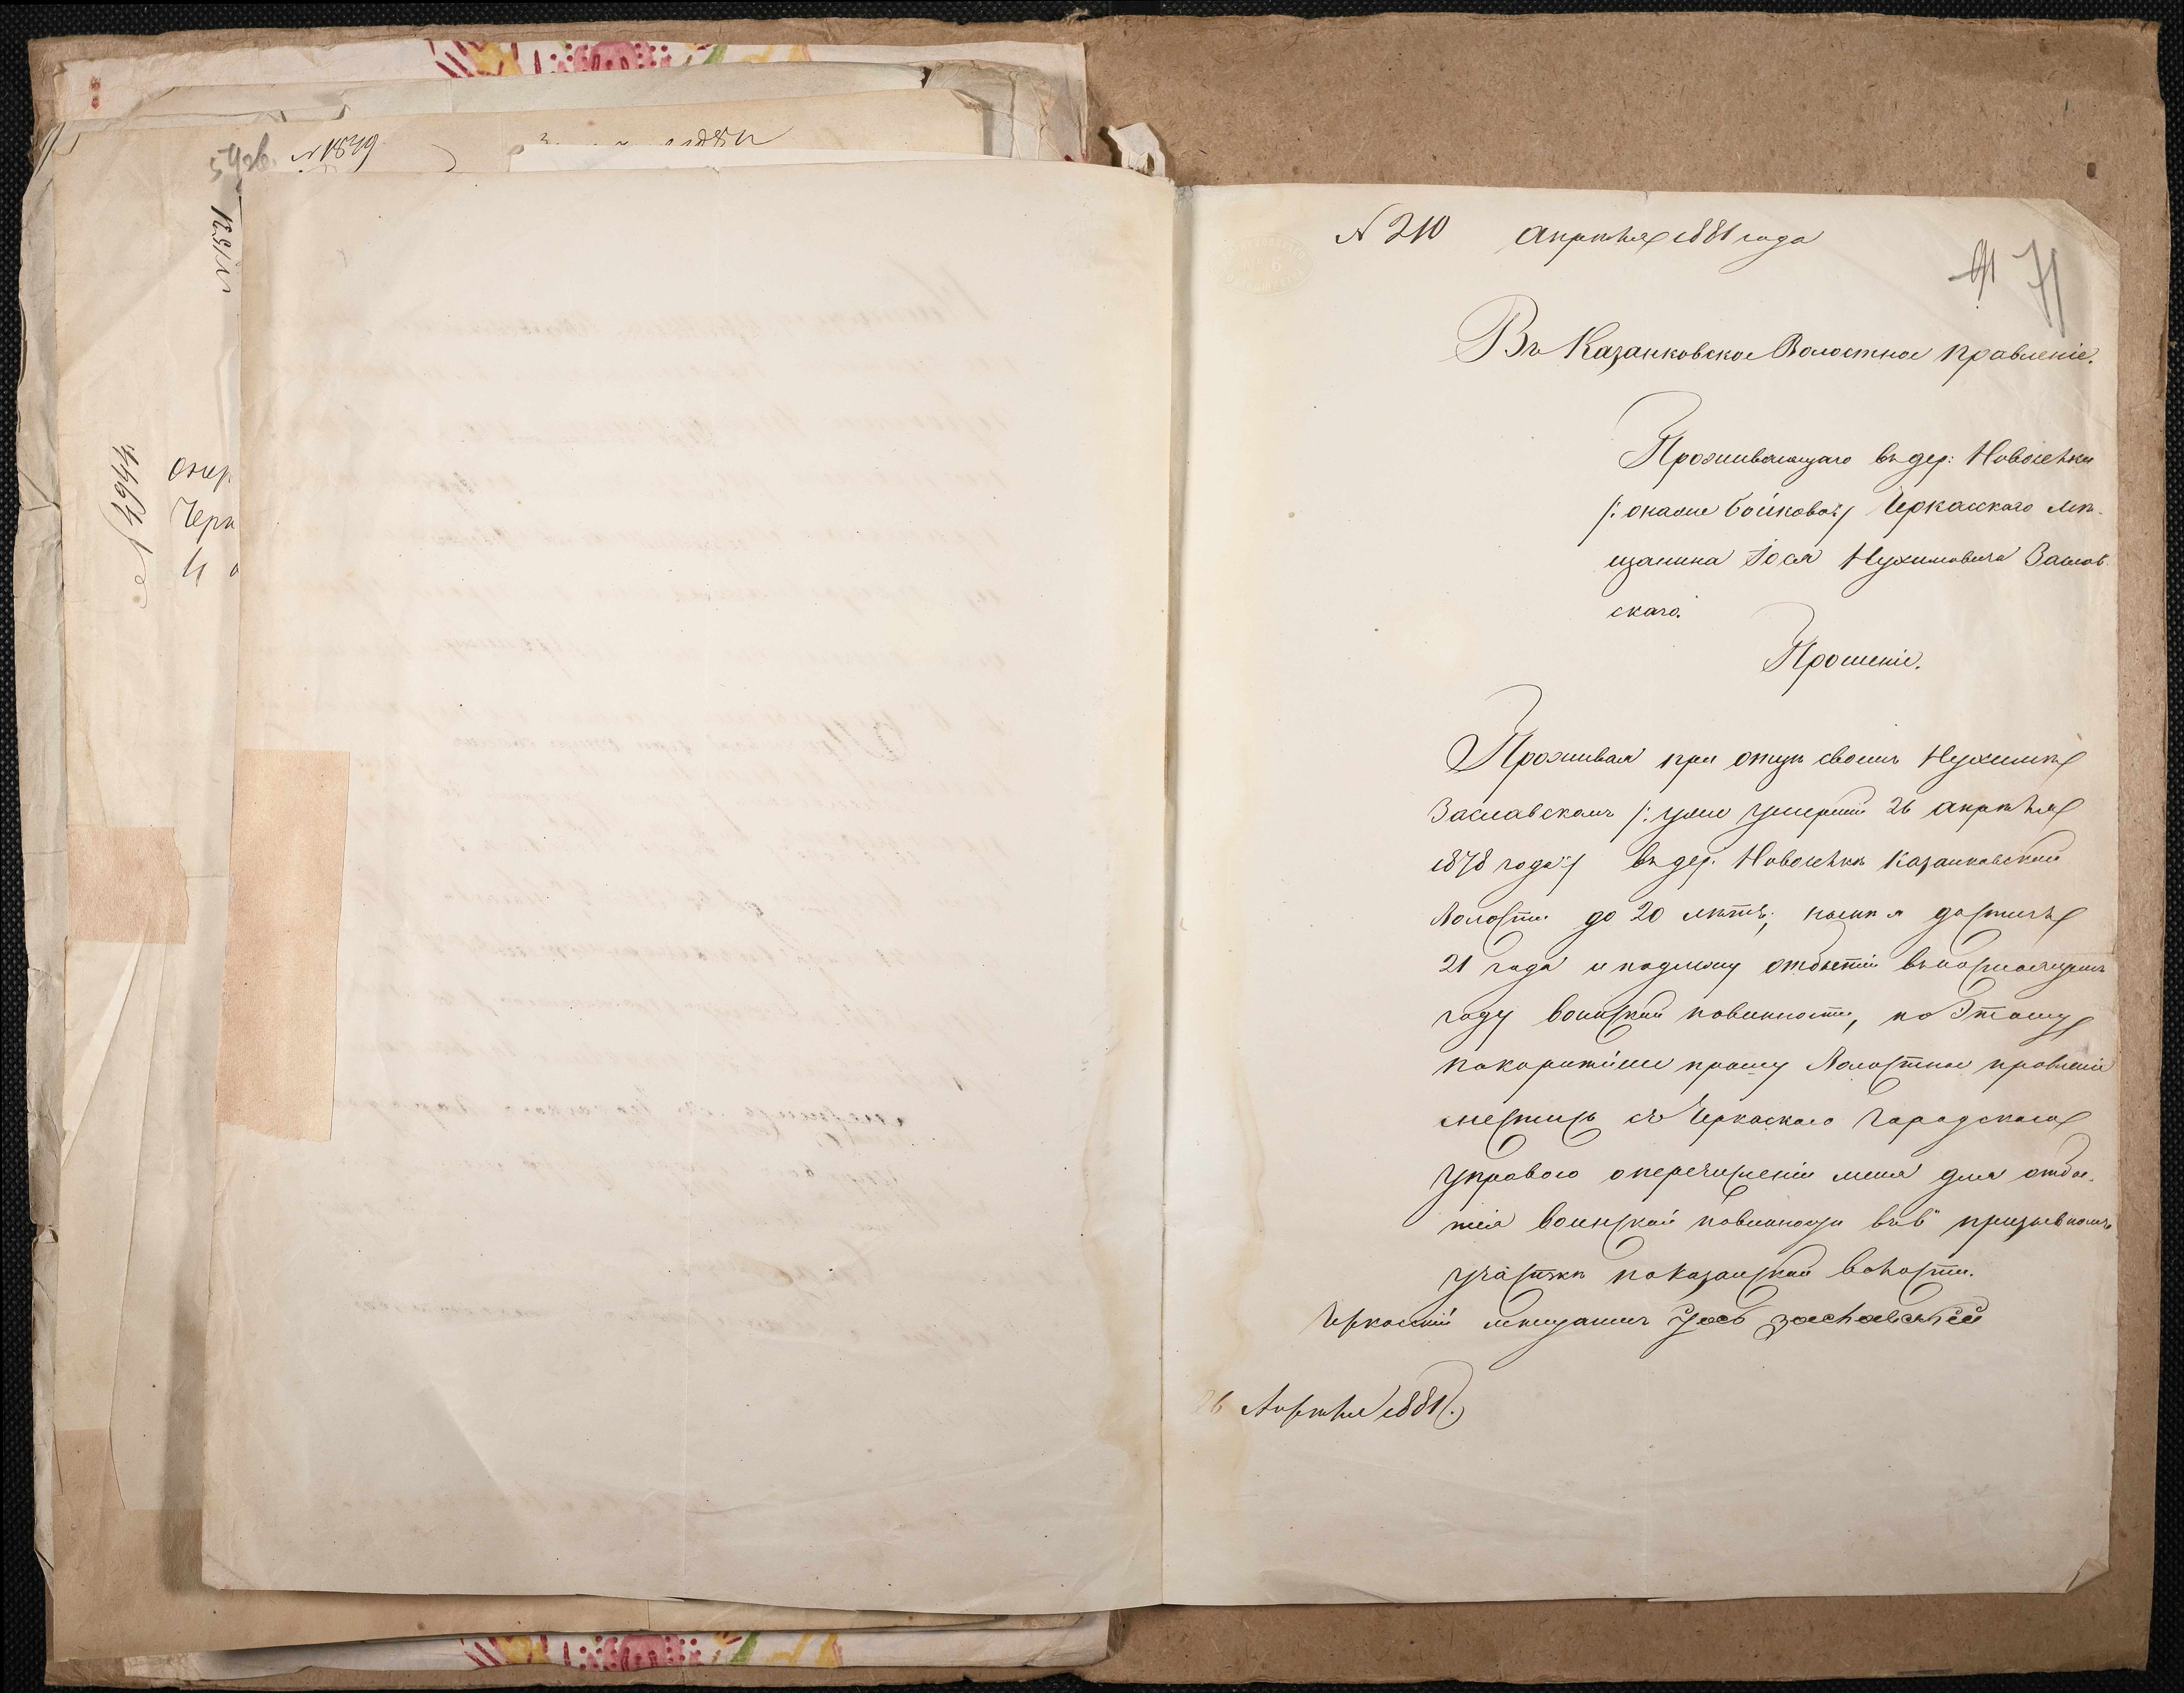 54 об.
N 1849
N 1231
N 4944
Черк
N 210 апрѣля 1881 года
91 71
Въ Казанковское Волостное правленіе.
Проживающаго въ дер: Новосѣлки
/: онаже Бойкова :/ Черкасского мѣ-
щанина Іося Нухимовича Заслав-
скаго.
Прошеніе.
Проживая при отцѣ своемъ Нухимѣ
Заславскомъ /: уже умершій 26 апрѣля
1878 года :/ въ дер. Новосѣлкѣ Казанковской
Волости до 20 лѣтъ, нынѣ я достигъ
21 года и подлежу отбытіи въ настоящемъ
году воинской повинности, по Этому
покорнѣйше прошу Волостное правленіе
снестись съ Черкаского Городскаго
Управою о перечисленіи меня для отбы-
тія воинской повинности въ 6 призывномъ
участкѣ по Казанской волости.
Черкаский мещанинъ Йось заславский
26 Апрѣля 1881 г.